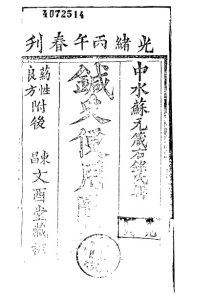 4072514
光緒丙午春刊
中水蘇元箴右銓氏
鍼灸便用圖
藥性
良方附後
東昌文酉堂藏板